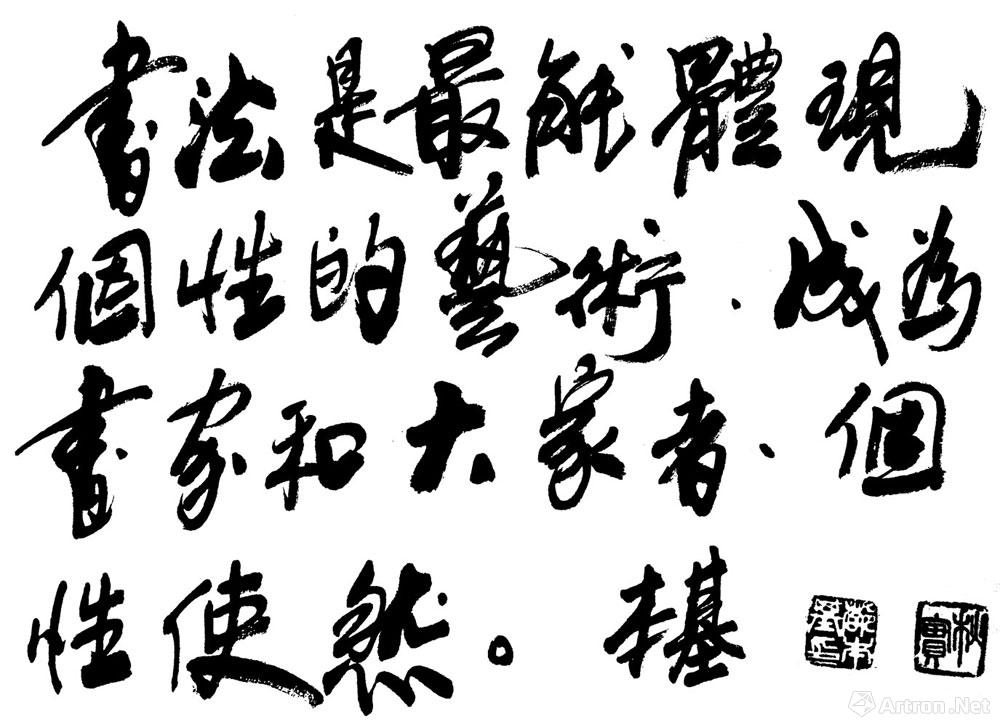 書法是最能體現
個性的藝術.成為
書家和大家者.個
性使然。本基
秋實
Artron.Net